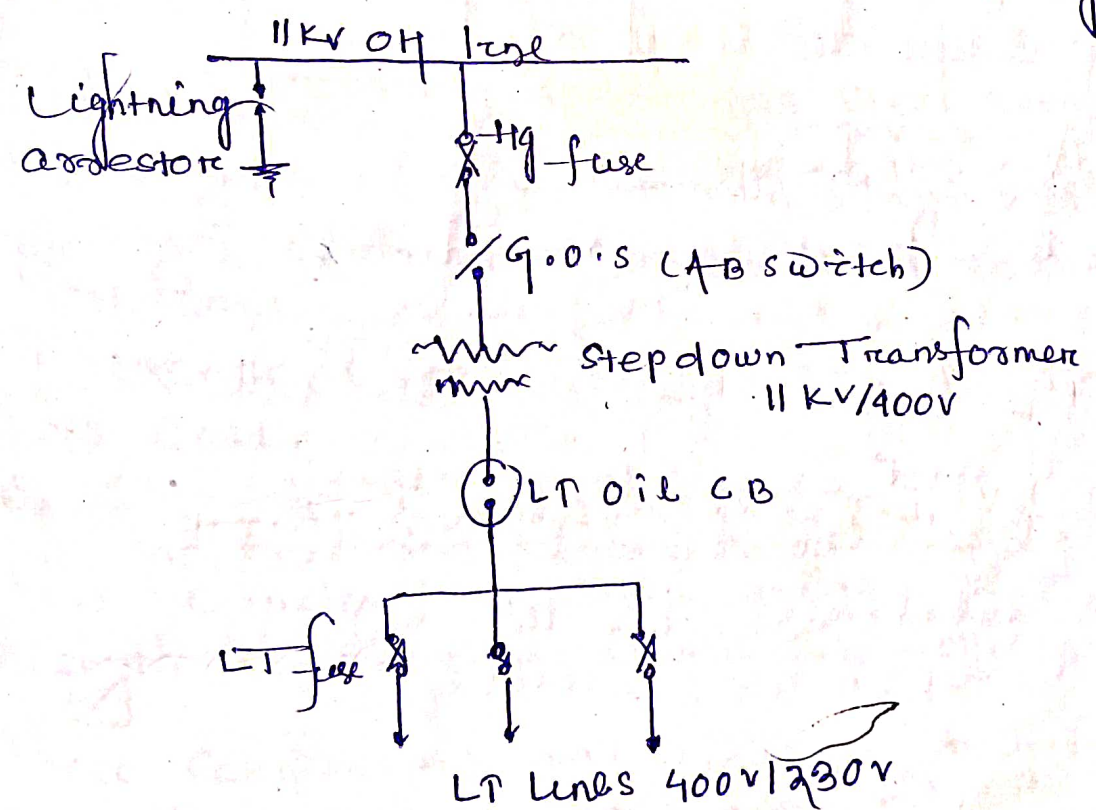 11 KV OH line
Lightning
arrestor
Hg fuse
G.O.S (AB switch)
Stepdown Transformer
11 KV/400V
LT Oil CB
LT fuse
LT Lines 400V/230V